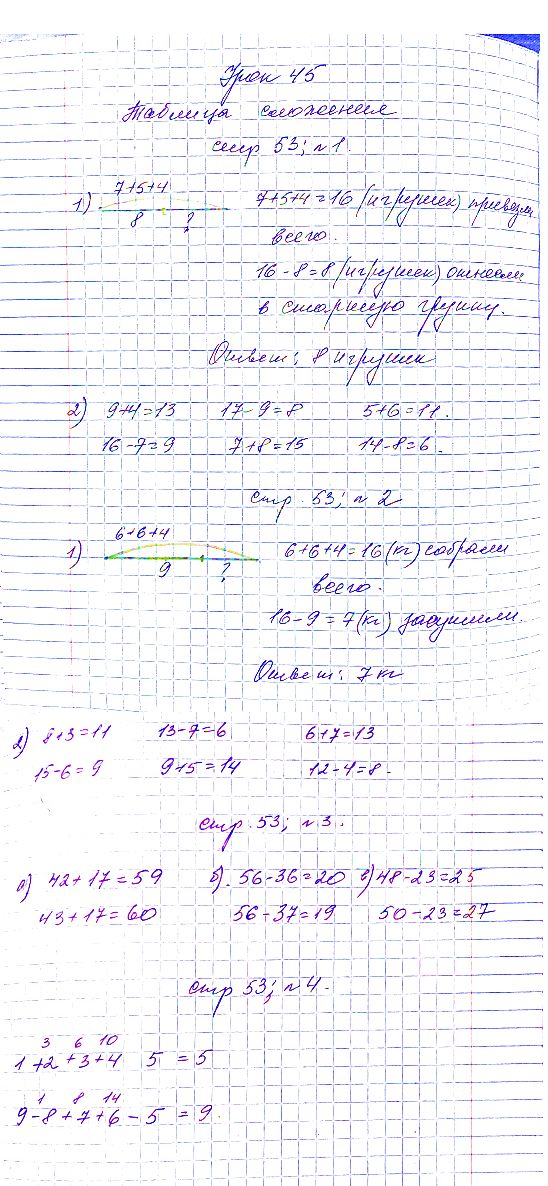 Урок 45
Таблица сложения
стр 53; №1.
1) 7+5+4 7+5+4=16 (игрушек) привезли
8 ? всего.
16-8=8 (игрушек) отнесли
в старшую группу.
Ответ: 8 игрушек
2) 9+4=13 17-9=8 5+6=11.
16-7=9 7+8=15 14-8=6.
стр. 53; №2
1) 6+6+4 6+6+4=16 (кг) собрали
9 ? всего.
16-9=7 (кг) засушили.
Ответ: 7 кг
2) 8+3=11 13-7=6 6+7=13
15-6=9 9+5=14 12-4=8.
стр. 53; №3.
а) 42+17=59 б). 56-36=20 в) 48-23=25
43+17=60 56-37=19 50-23=27
стр 53; №4.
3 6 10
1+2+3+4 5 = 5
1 8 14
9-8+7+6-5 = 9.